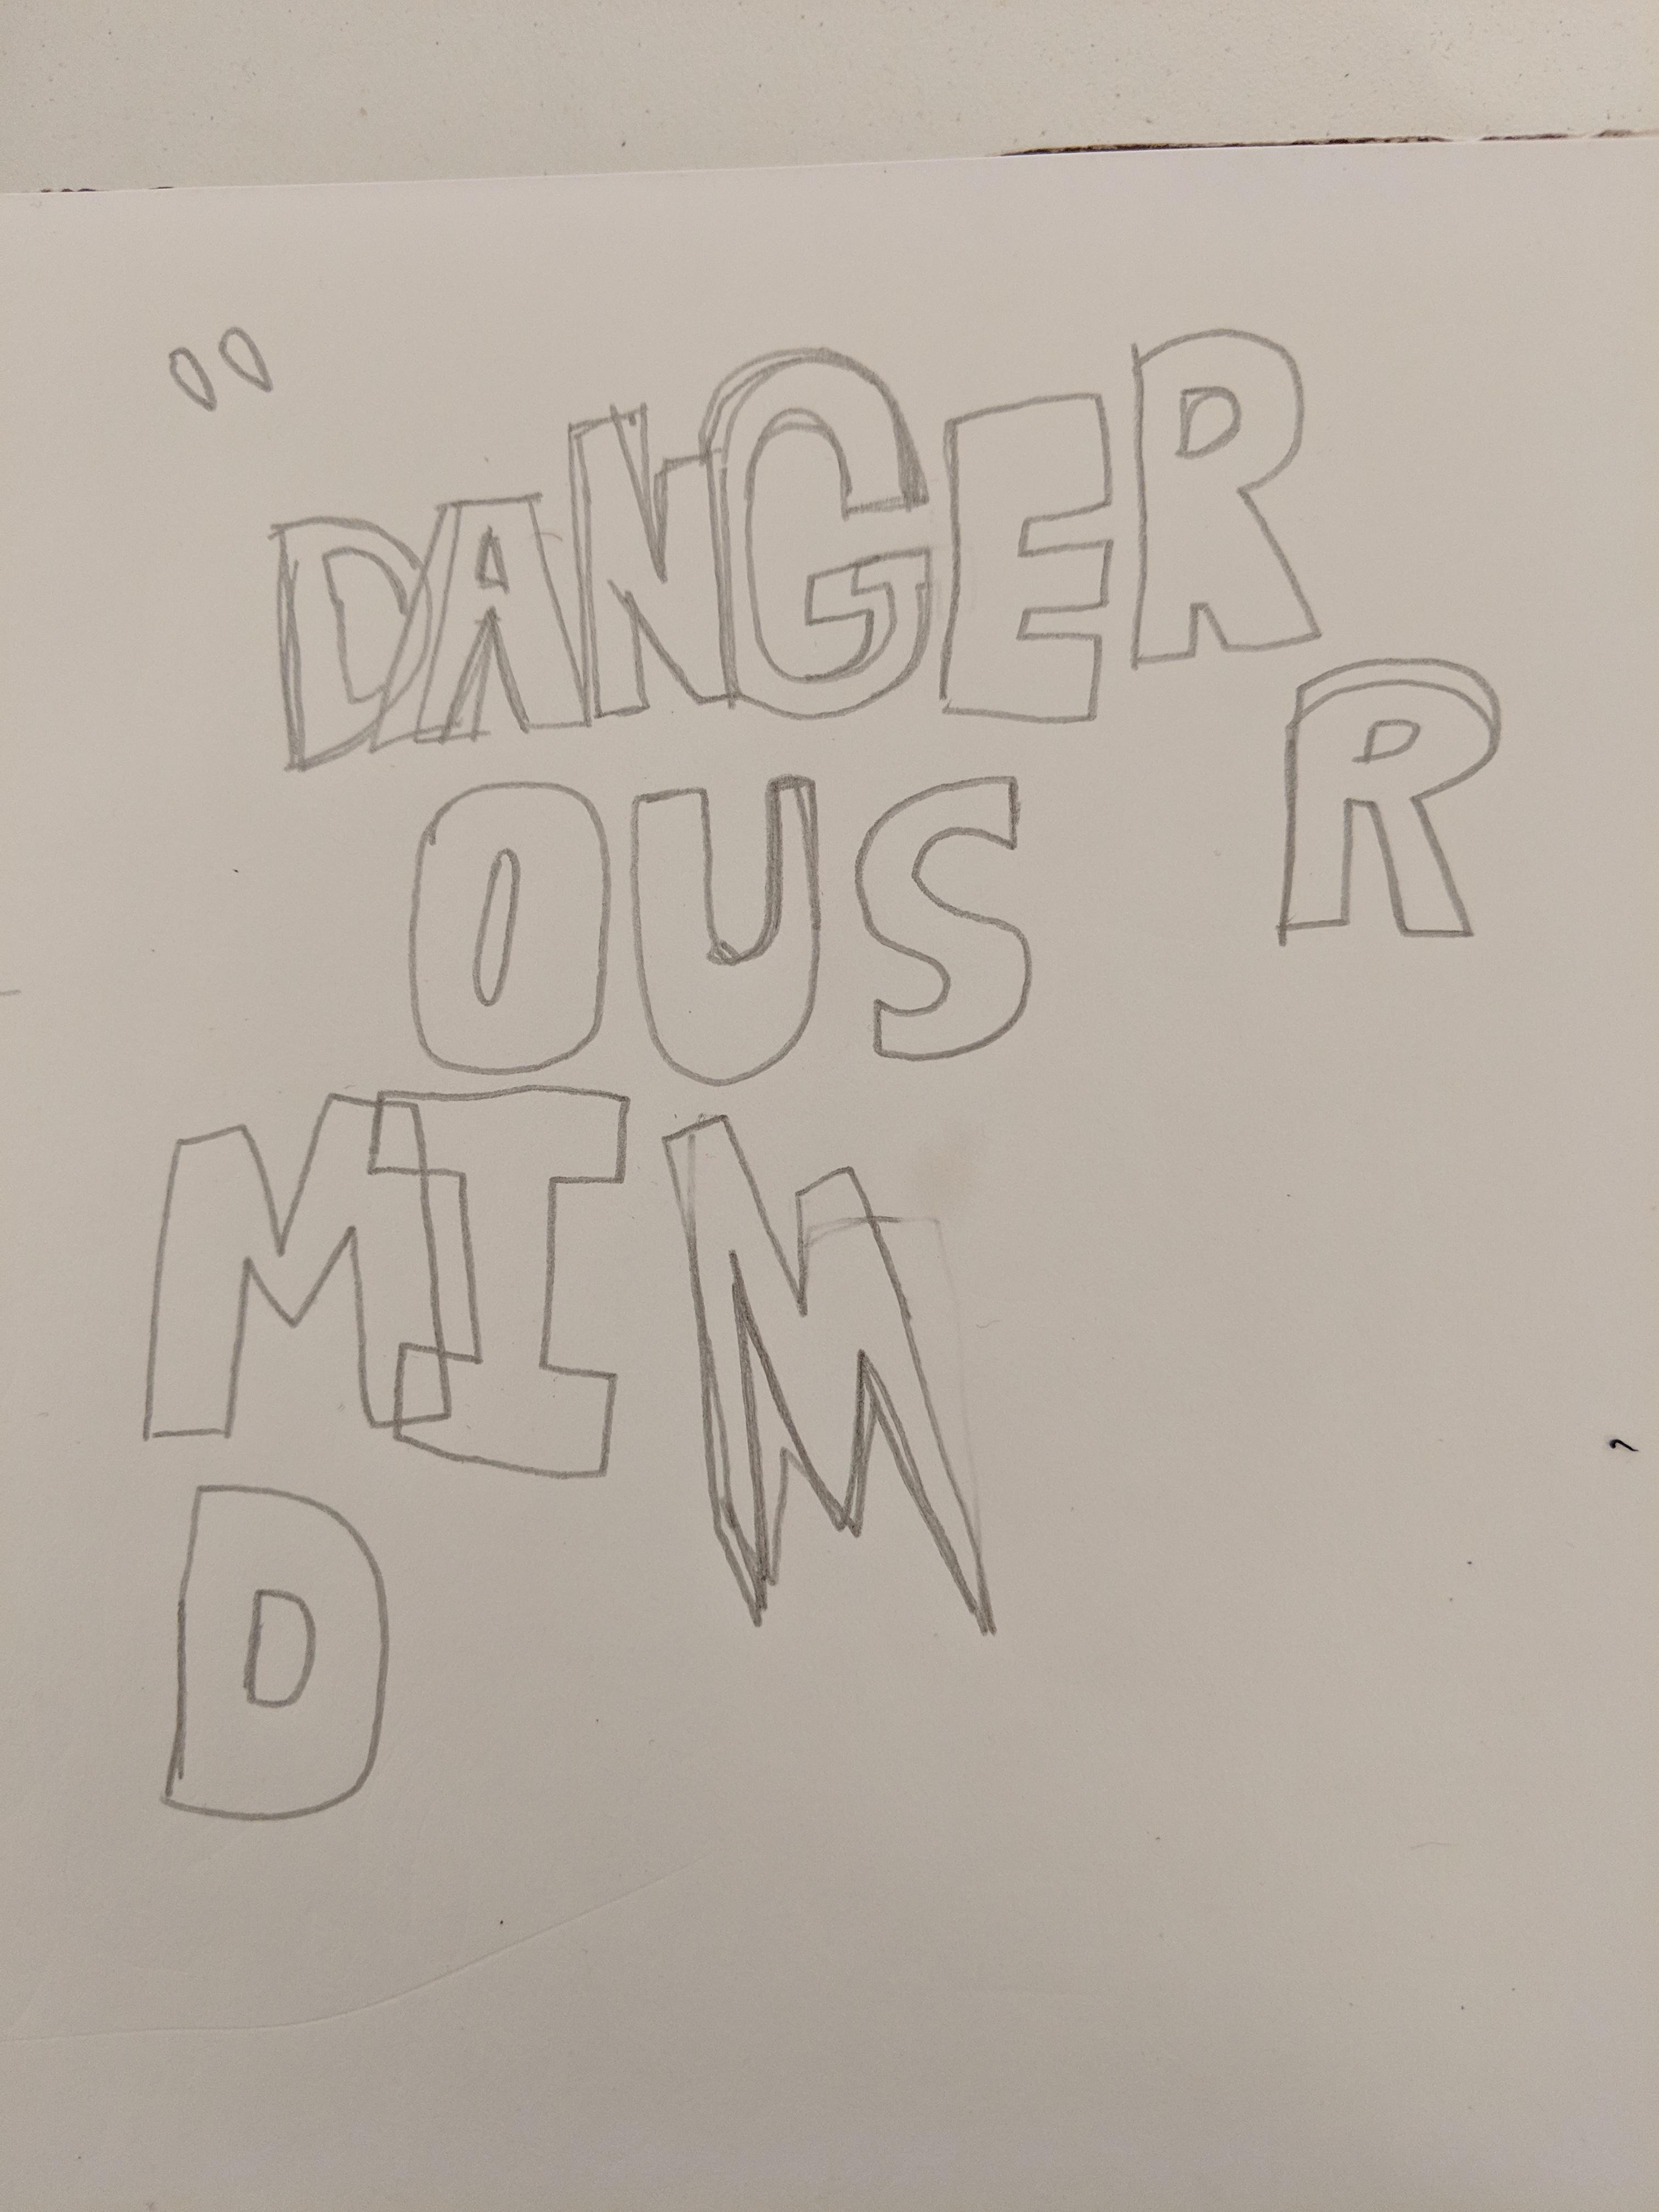 "DANGER
R
OUS
MIM
D